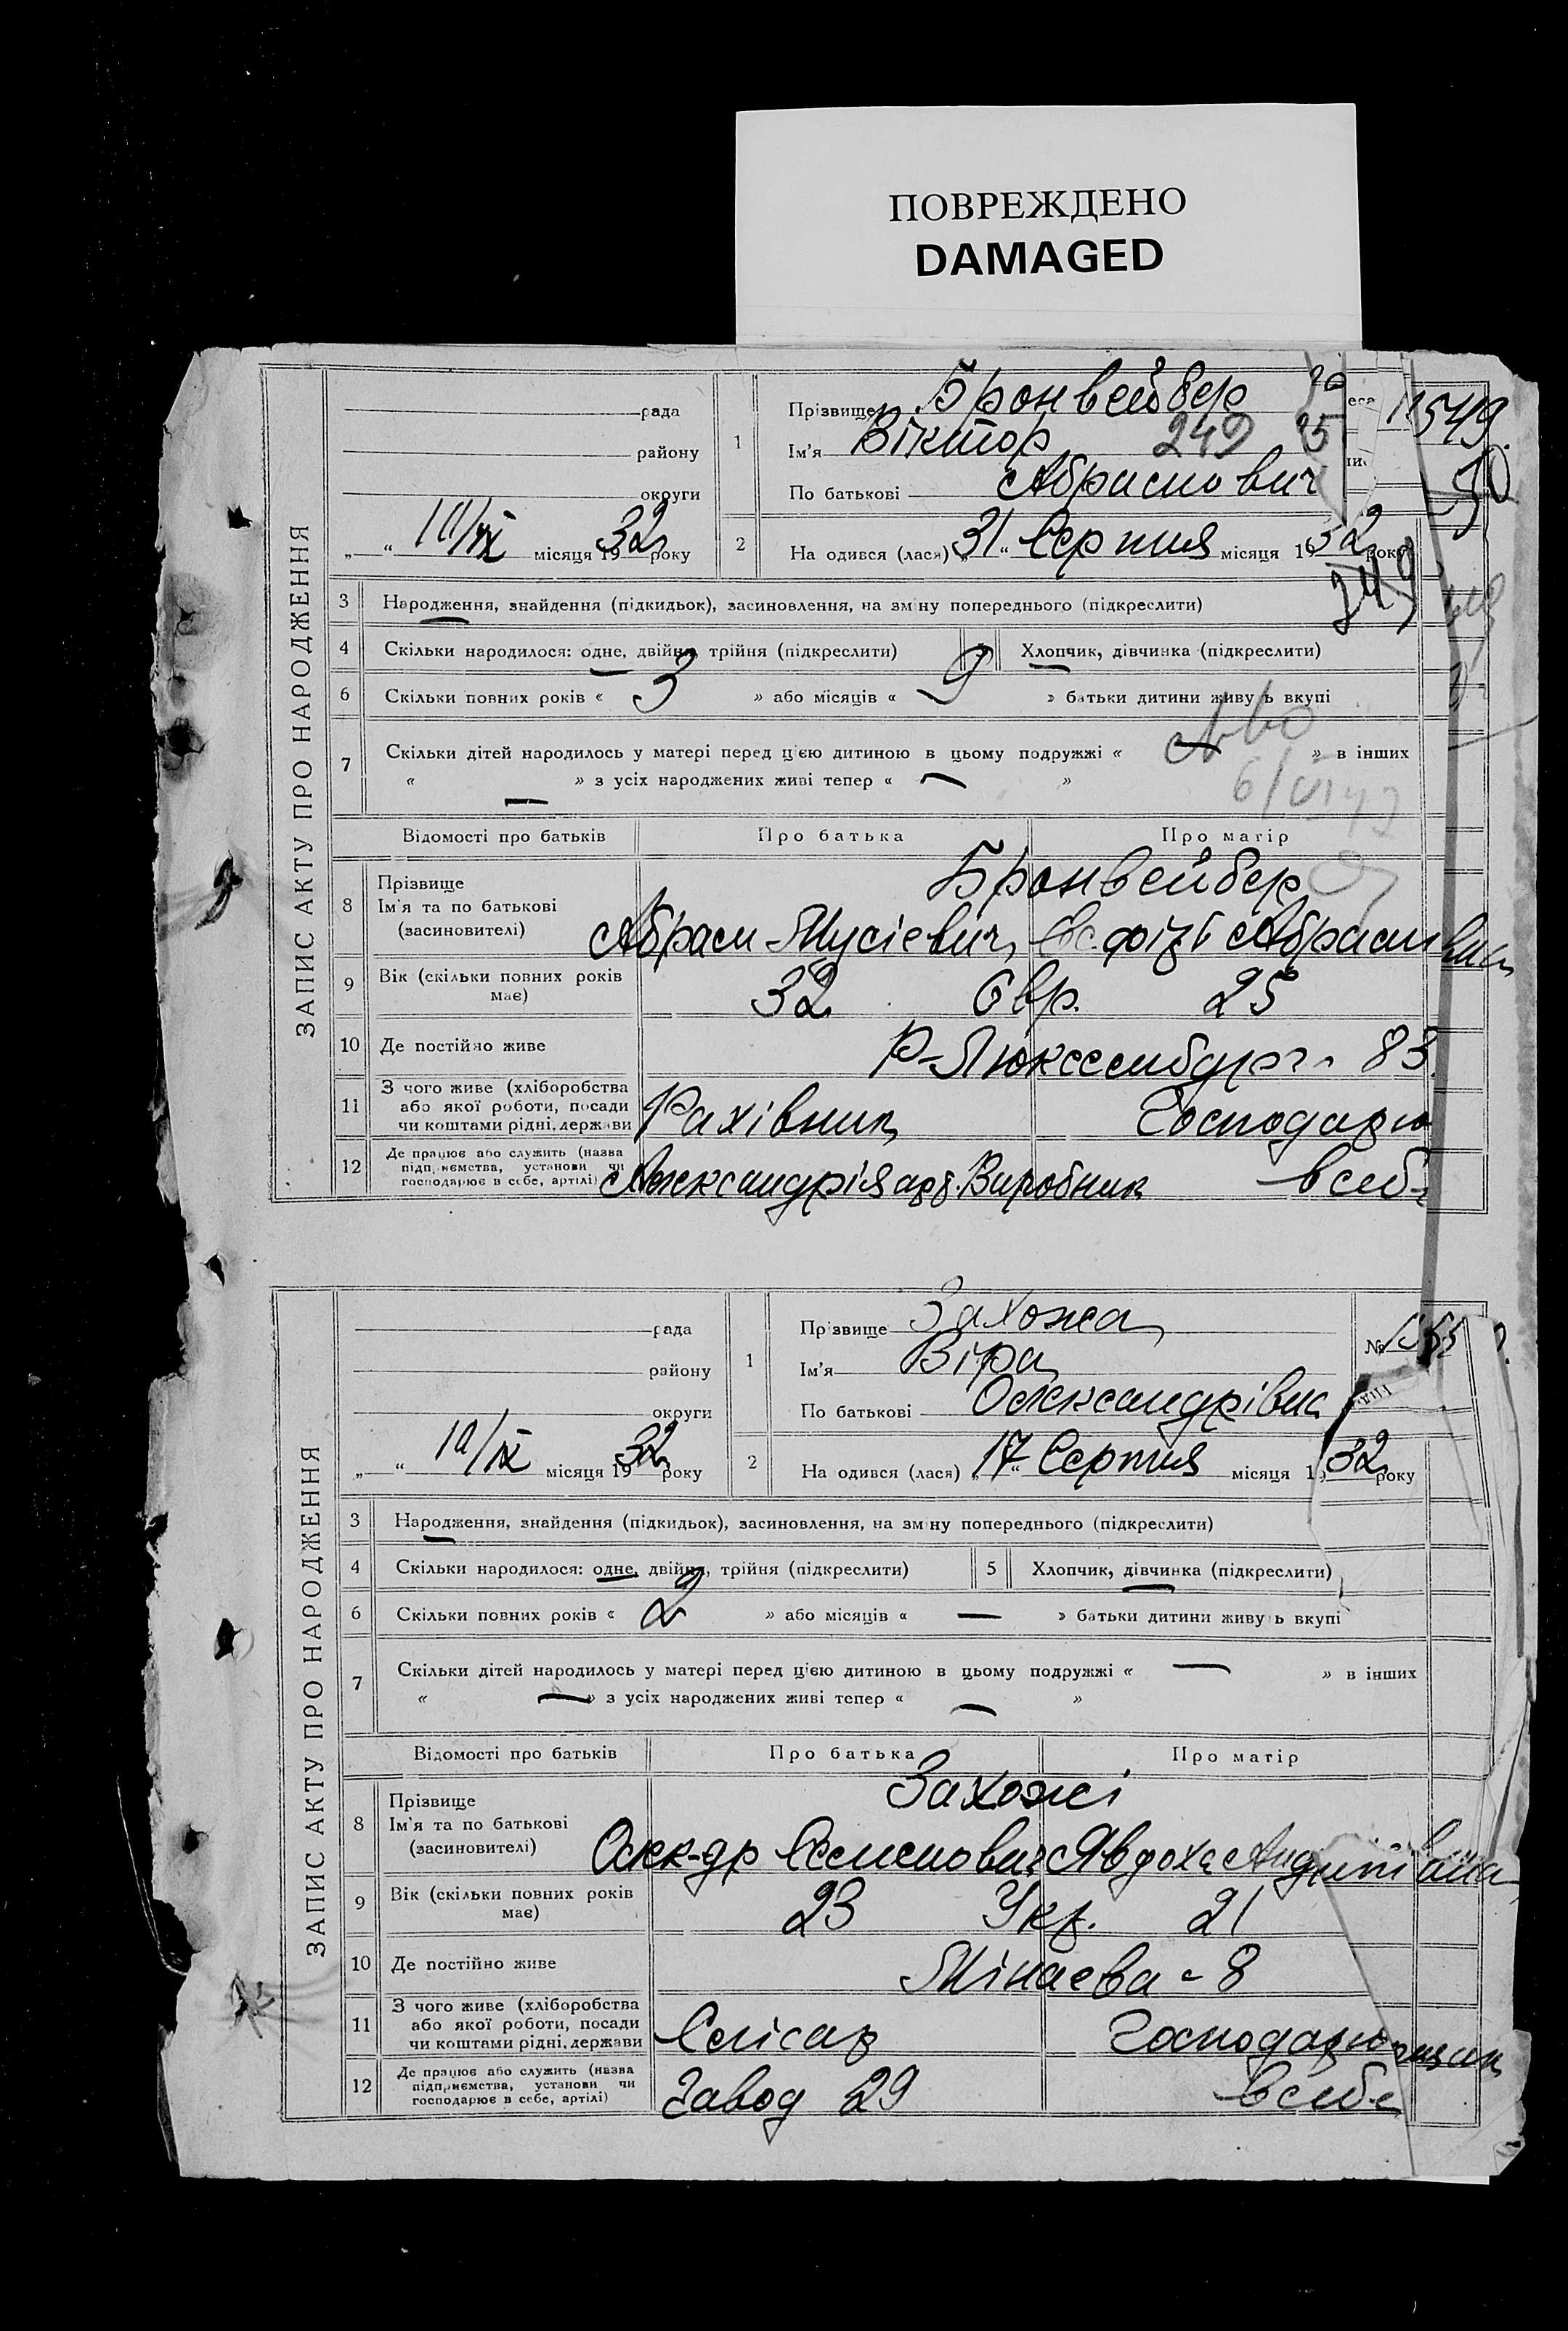 ПОВРЕЖДЕНО
DAMAGED
ЗАПИС АКТУ ПРО НАРОДЖЕННЯ
рада
району
округи
„ “ 10/IX місяця 1932 року
1
Прізвище Бронвейбер
1549.
Ім'я Віктор 249
По батькові Абрамович
50
2
На одився (лася) „31“ Серпня місяця 1932 року
249
3 Народження, знайдення (підкидьок), засиновлення, на зміну попереднього (підкреслити)
4 Скільки народилося: одне, двійня, трійня (підкреслити) Хлопчик, дівчинка (підкреслити)
6 Скільки повних років « 3 » або місяців « 9 » батьки дитини живуть вкупі
7 Скільки дітей народилось у матері перед цією дитиною в цьому подружжі « — » в інших
« — » з усіх народжених живі тепер « — »
6/VI
Відомості про батьків Про батька Про матір
8 Прізвище
Ім'я та по батькові
(засиновителі)
Бронвейбер
Абрам Мусієвич
9 Вік (скільки повних років
має)
32 Євр. 25
10 Де постійно живе Р-Люксембург 83
11 З чого живе (хліборобства
або якої роботи, посади
чи коштами рідні, держави
Рахівник Господарю
12 Де працює або служить (назва
підприємства, установи чи
господарює в себе, артілі)
Олександрія арт. Виробник в себе
ЗАПИС АКТУ ПРО НАРОДЖЕННЯ
рада
району
округи
„ “ 10/IX місяця 1932 року
1
Прізвище Захожа
№
Ім'я Віра
По батькові Олександрівна
2
На одився (лася) „17“ Серпня місяця 1932 року
3 Народження, знайдення (підкидьок), засиновлення, на зміну попереднього (підкреслити)
4 Скільки народилося: одне, двійня, трійня (підкреслити) 5 Хлопчик, дівчинка (підкреслити)
6 Скільки повних років « 2 » або місяців « — » батьки дитини живуть вкупі
7 Скільки дітей народилось у матері перед цією дитиною в цьому подружжі « — » в інших
« — » з усіх народжених живі тепер « — »
Відомості про батьків Про батька Про матір
8 Прізвище
Ім'я та по батькові
(засиновителі)
Захожі
Олек-др Семенович Явдоха Андріївна
9 Вік (скільки повних років
має)
23 Укр. 21
10 Де постійно живе Мінаєва - 8
11 З чого живе (хліборобства
або якої роботи, посади
чи коштами рідні, держави
Слісар Господарю
12 Де працює або служить (назва
підприємства, установи чи
господарює в себе, артілі)
Завод 29 в себе